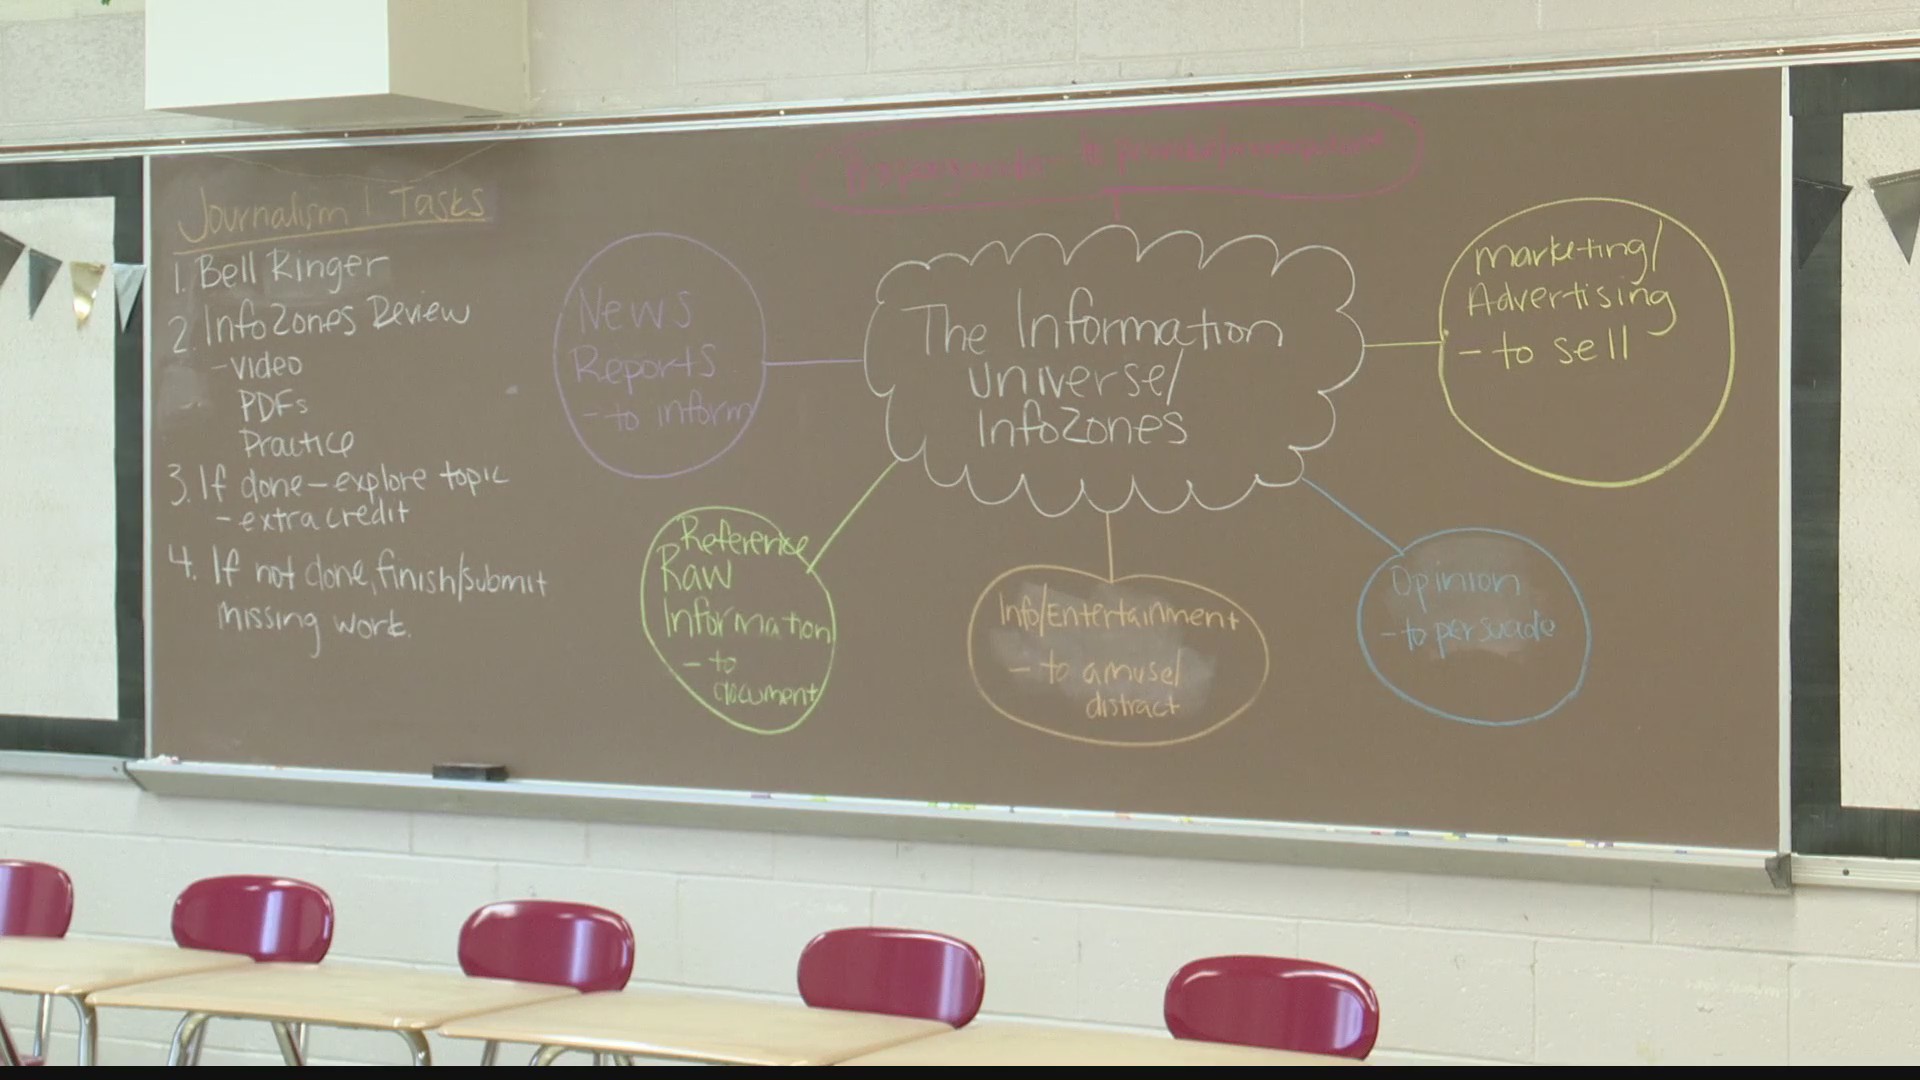 Journalism 1 Tasks
1. Bell Ringer
2. InfoZones Review
- Video
PDFs
Practice
3. If done - explore topic
- extra credit
4. If not done, finish/submit
missing work.
Propaganda - to
The Information
Universe/
InfoZones
News
Reports
- to inform
Marketing/
Advertising
- to sell
Reference
Raw
Information
- to
document
Info/Entertainment
- to amuse/
distract
Opinion
- to persuade